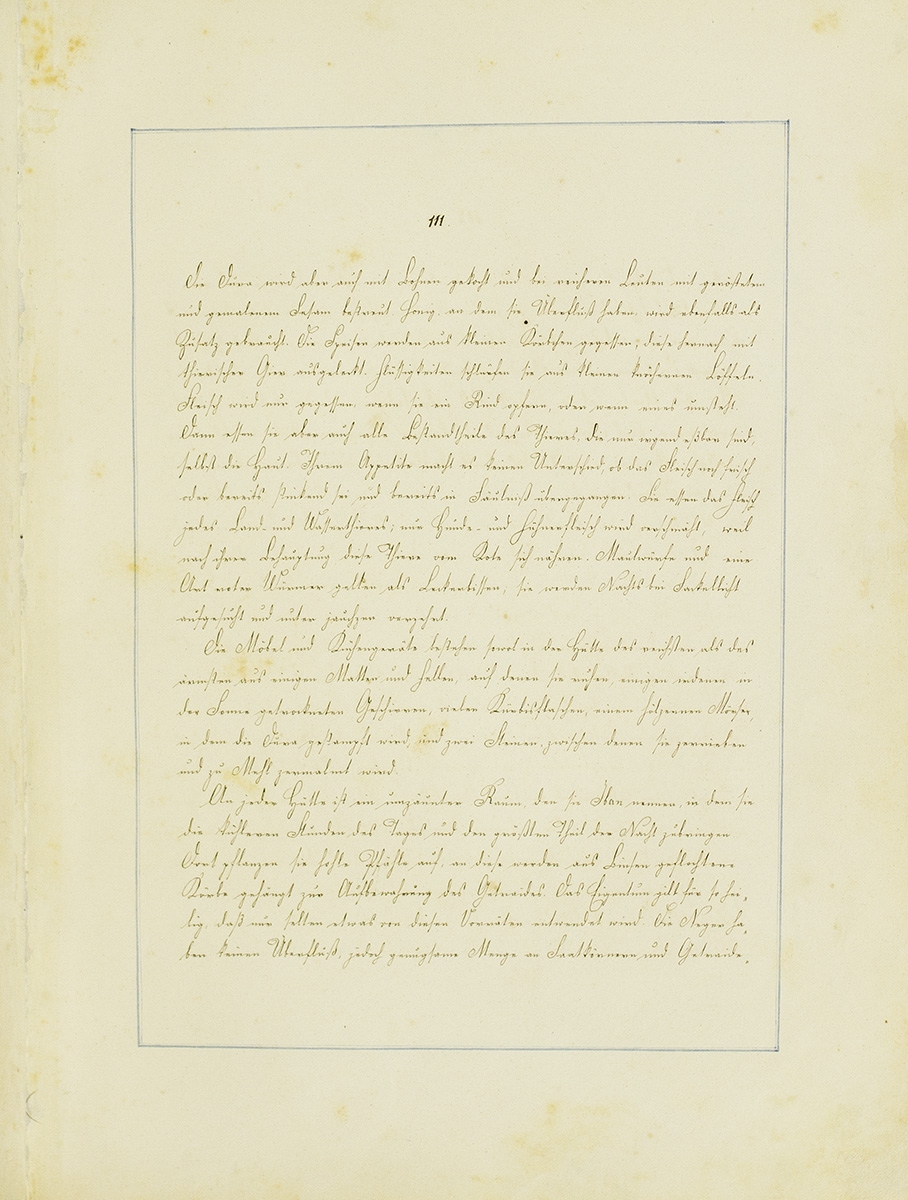 111.
Die Dura wird aber auch mit Bohnen gekocht und bei reicheren Leuten mit geröstetem
und gemalenem Sesam bestreut. Honig, an dem sie Überfluß haben, wird ebenfalls als
Zusatz gebraucht. Die Speisen werden aus kleinen Körbchen gegessen; diese hernach mit
thierischer Gier ausgeleckt. Flüssigkeiten schlürfen sie aus kleinen knöchernen Löffeln.
Fleisch wird nur gegessen, wenn sie ein Rind opfern, oder wenn eines umsteht.
Dann essen sie aber auch alle Bestandtheile des Thieres, die nur irgend eßbar sind,
selbst die Haut. Ihrem Appetite macht es keinen Unterschied, ob das Fleisch noch frisch
oder bereits stinkend sei und bereits in Fäulniß übergegangen. Sie essen das Fleisch
jedes Land- und Wasserthieres; nur Hunde- und Hühnerfleisch wird verschmäht, weil
nach ihrer Behauptung diese Thiere vom Kote sich nähren. Maulwürfe und eine
Art roter Würmer gelten als Leckerbissen; sie werden Nachts bei Fackellicht
aufgesucht und unter jauchzen verzehrt.
Die Möbel und Küchengeräte bestehen sowol in der Hütte des reichsten als des
ärmsten aus einigen Matten und Fellen, auf denen sie ruhen, einigen irdenen in
der Sonne getrockneten Geschirren, vielen Kürbisflaschen, einem hölzernen Mörser,
in dem die Dura gestampft wird, und zwei Steinen, zwischen denen sie zerrieben
und zu Mehl zermalmt wird.
An jeder Hütte ist ein umzäunter Raum, den sie nennen, in dem sie
die kühleren Stunden des Tages und den größten Theil der Nacht zubringen
Dort pflanzen sie hohle Pfähle auf, an diese werden aus Binsen geflochtene
Körbe gehängt zur Aufbewahrung des Getraides. Das Eigentum gilt für so hei„
lig, daß nur selten etwas von diesen Vorräten entwendet wird. Die Neger ha„
ben keinen Überfluß, jedoch genugsame Menge an Saatkörnern und Getraide„